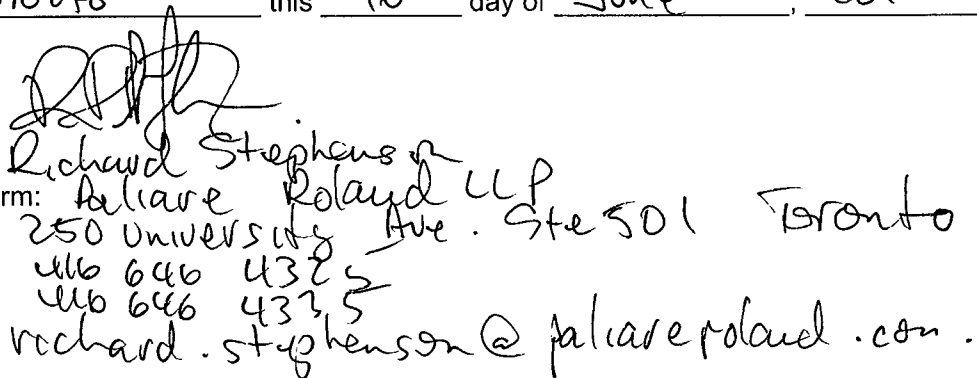 this 10 day of June,
Richard Stephenson
rm: Paliare Roland LLP
250 University Ave. Ste 501 Toronto
416 646 4325
416 646 4335
richard.stephenson@paliareroland.com.